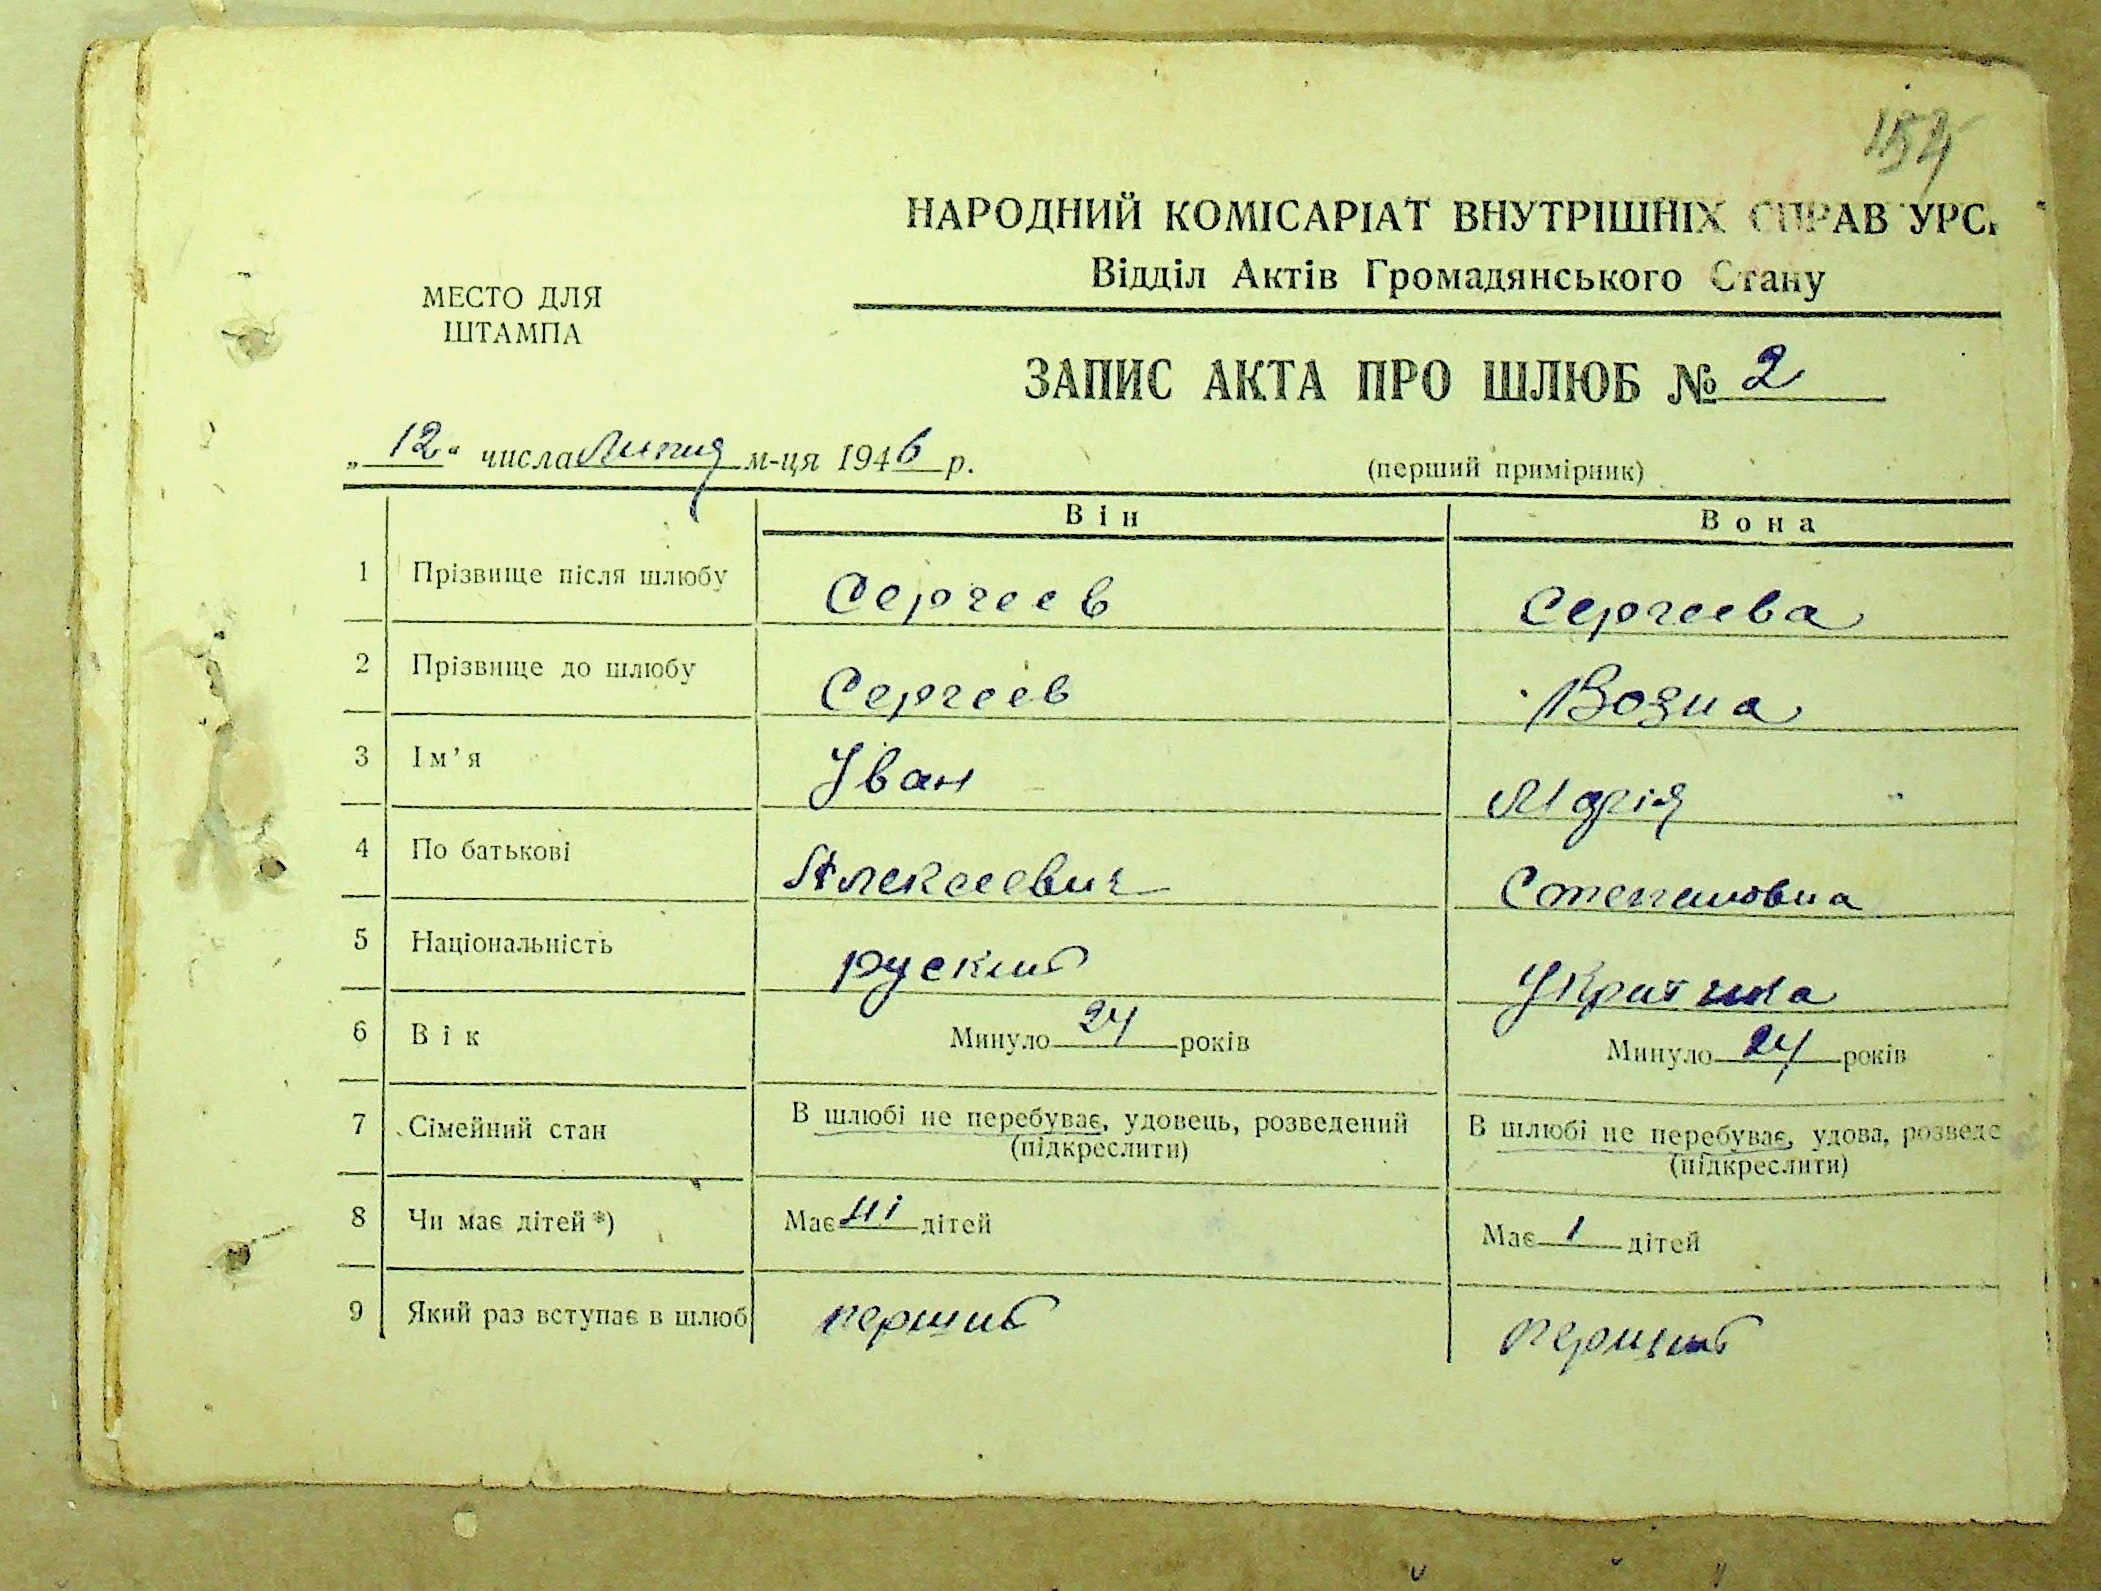 154
НАРОДНИЙ КОМІСАРІАТ ВНУТРІШНІХ СПРАВ УРС
Відділ Актів Громадянського Стану
МЕСТО ДЛЯ
ШТАМПА
ЗАПИС АКТА ПРО ШЛЮБ № 2
„12“ числа Липня м-ця 1946 р.
(перший примірник)
Він Вона
1 Прізвище після шлюбу Сергеев Сергеева
2 Прізвище до шлюбу Сергеев Возна
3 Ім’я Іван Марія
4 По батькові Алексеевич Степановна
5 Національність руский Украінка
6 Вік Минуло 24 років Минуло 24 років
7 Сімейний стан В шлюбі не перебуває, удовець, розведений В шлюбі не перебуває, удова, розведе
(підкреслити) (підкреслити)
8 Чи має дітей*) Має ні дітей Має 1 дітей
9 Який раз вступає в шлюб перший перший